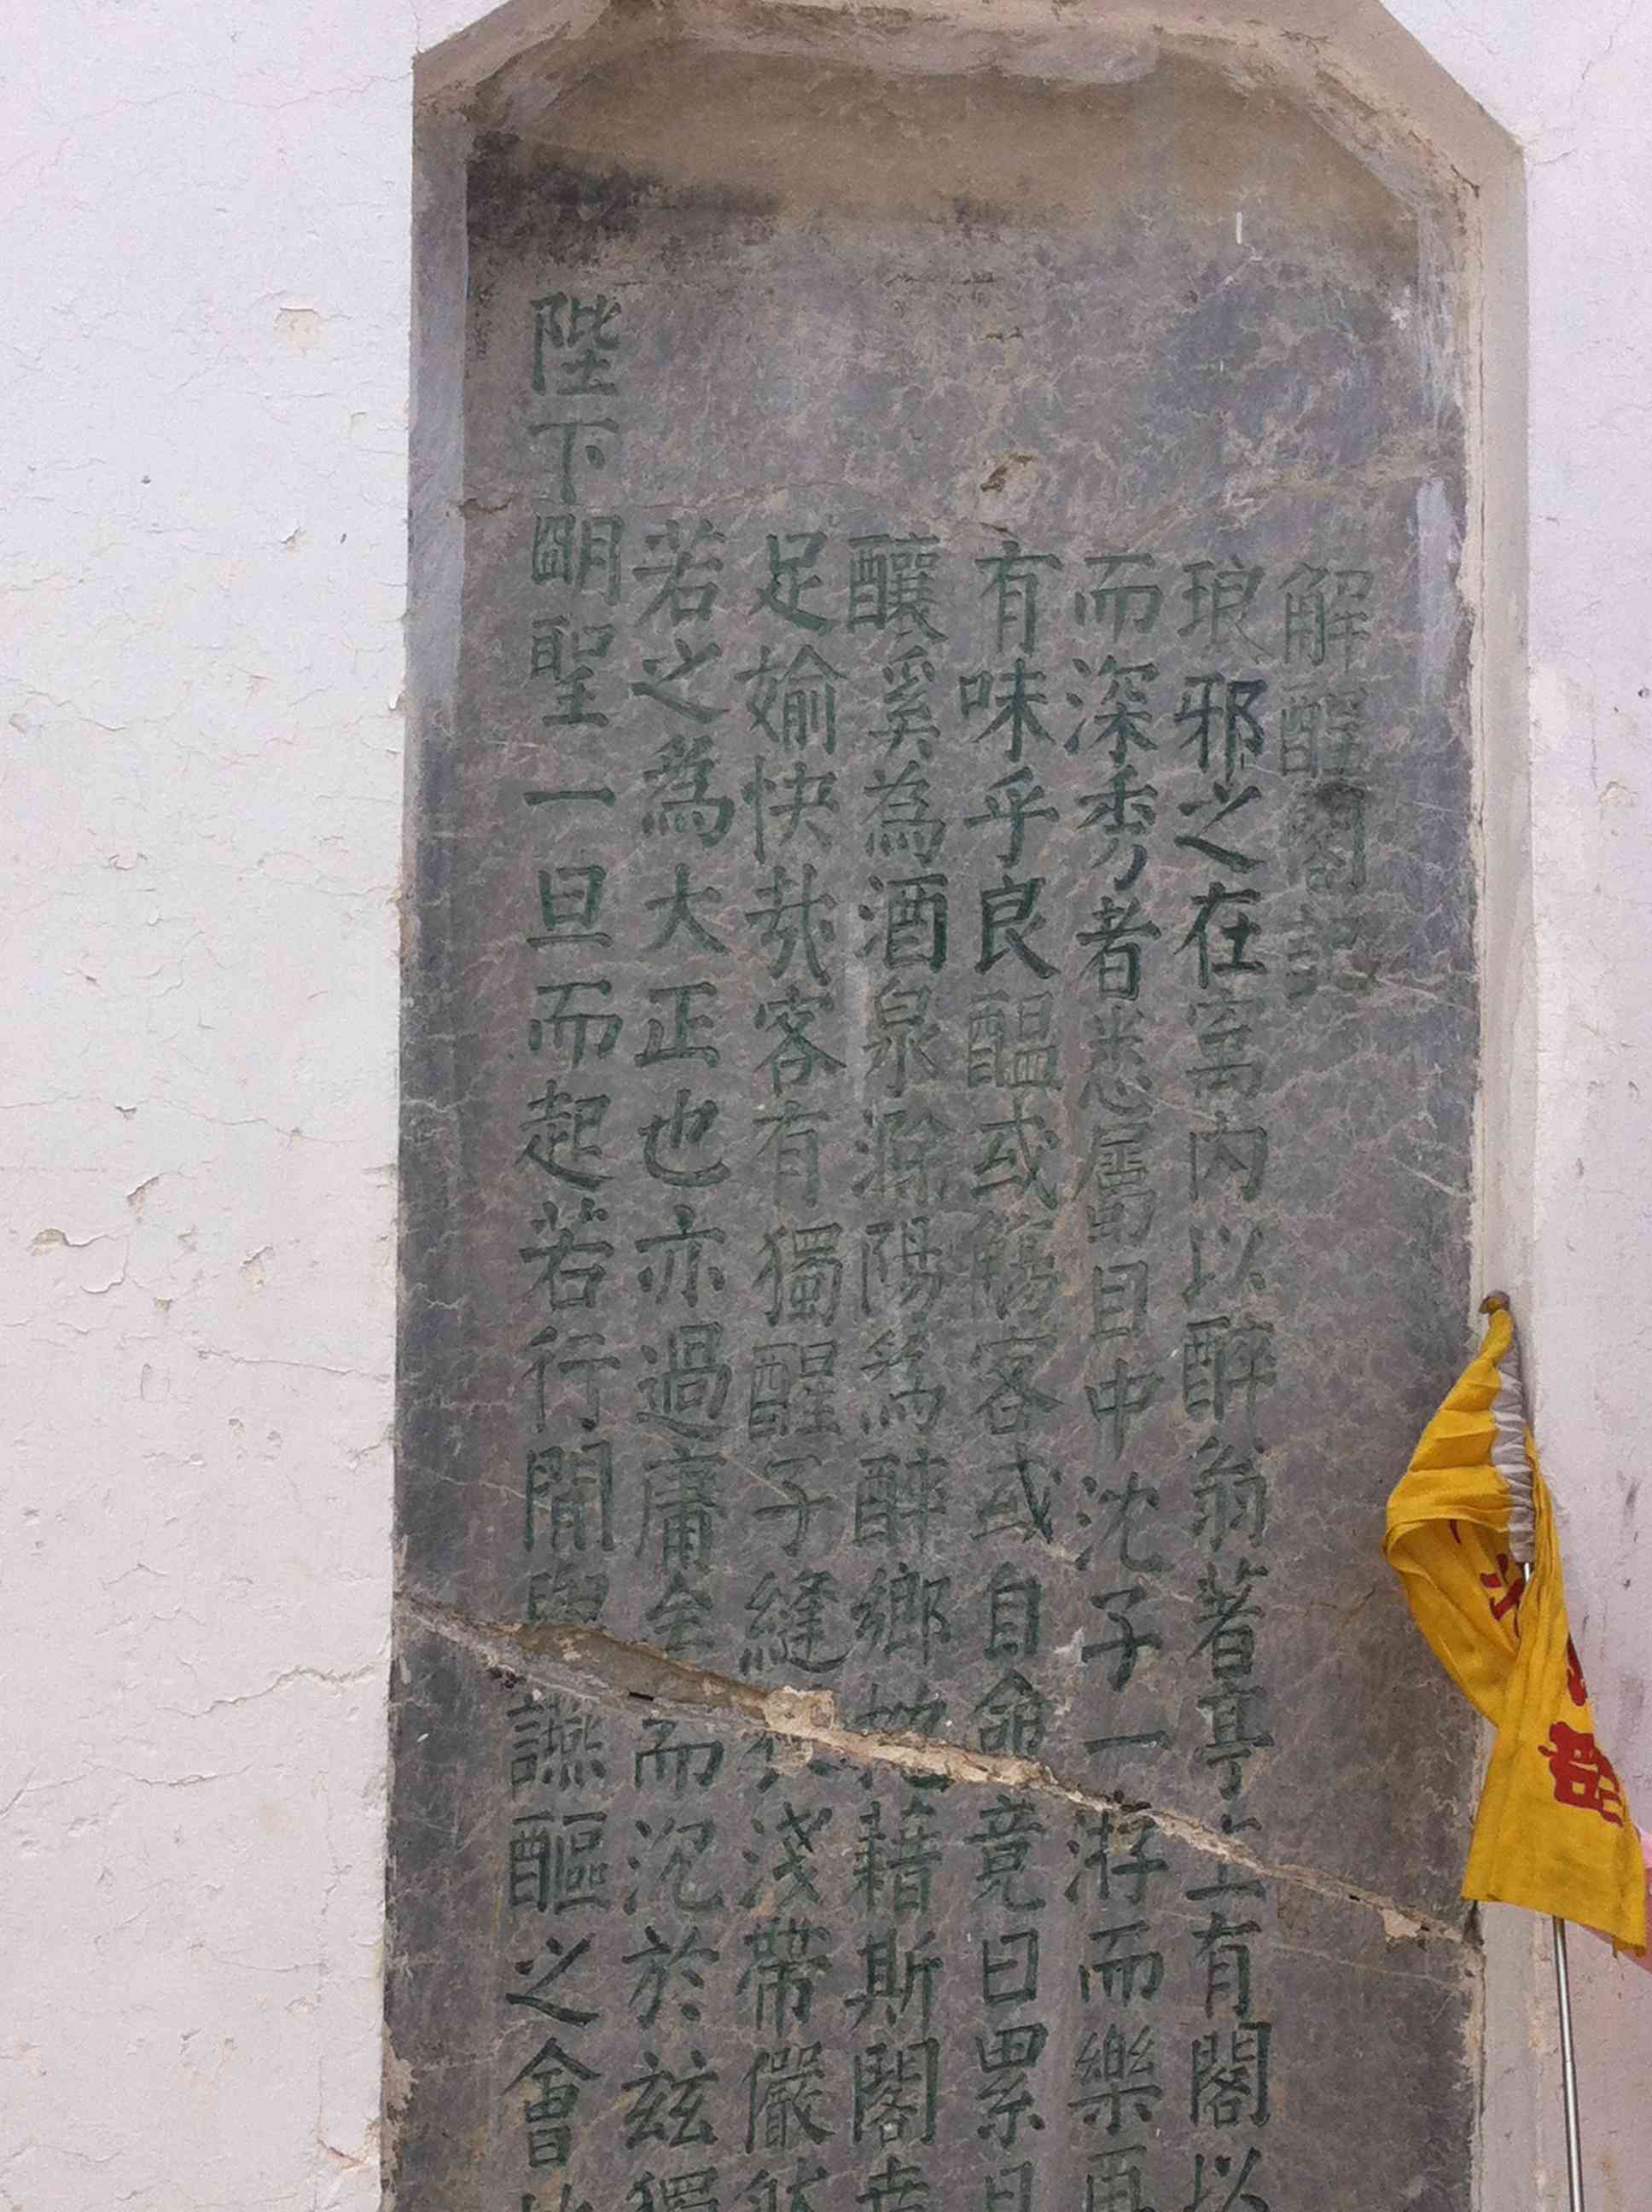 解酲閣記
琅邪之在寰内以醉翁著亭上有閣以
而深秀者悉属目中沈子一游而樂再
有味乎良醖或觴客或自命竟日累日
釀溪為酒泉滁陽為醉鄉枕藉斯閣
足媮快哉客有獨醒子縫掖淺帶儼然
若之為大正也亦過庸全而沉於兹獨
陛下明聖一旦而起若行間與讌醧之會